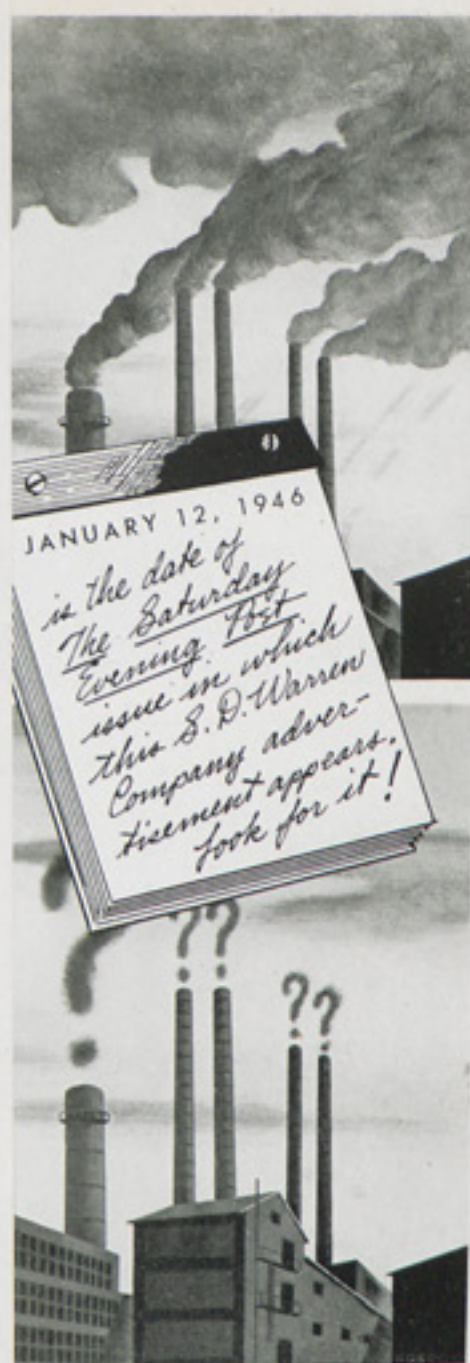 JANUARY 12, 1946
is the date of
The Saturday
Evening Post
issue in which
this S. D. Warren
Company adver-
tisement appears.
Look for it!
? ?
? ?